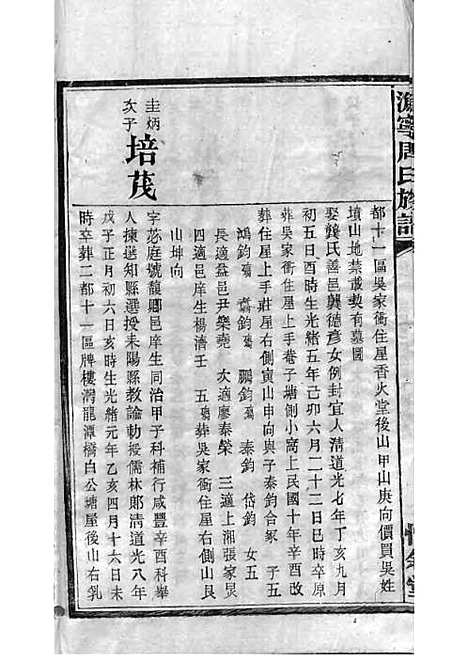 溈寧周氏族譜
都十一區吳家衝住屋香火堂後山甲山庚向價買吳姓
墳山地禁嚴契有墓圖
娶饒氏善邑龔德彥女例封宜人清道光七年丁亥九月
初五日酉時生光緒五年己卯六月二十二日巳時卒原
葬吳家衝住屋上手巷子塘側小窩上民國十年辛酉改
葬住屋上手莊屋右側寅山申向與子泰鈞合冢 子五
鴻鈞殤 鵬鈞殤 泰鈞 岱鈞 女五
長適益邑尹樂堯 次適廖泰榮 三適上湘張家炅
四適邑庠生楊濟壬 五殤葬吳家衝住屋右側山艮
山坤向
圭炳
次子
培茂
字苾庭號馥卿邑庠生同治甲子科補行咸豐辛酉科舉
人揀選知縣選授耒陽縣教諭勅授儒林郎清道光八年
戊子正月初六日亥時生光緒元年乙亥四月十六日未
時卒葬二都十一區牌樓灣龍潭橋白公塘屋後山右乳